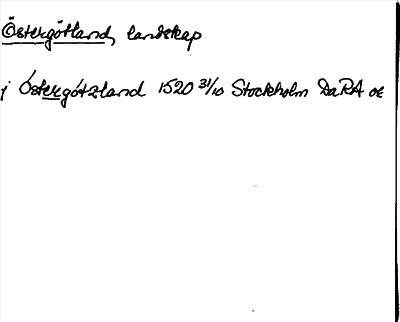 Östergötland, landskap
j Östergötzland 1520 31/10 Stockholm DaRA oe